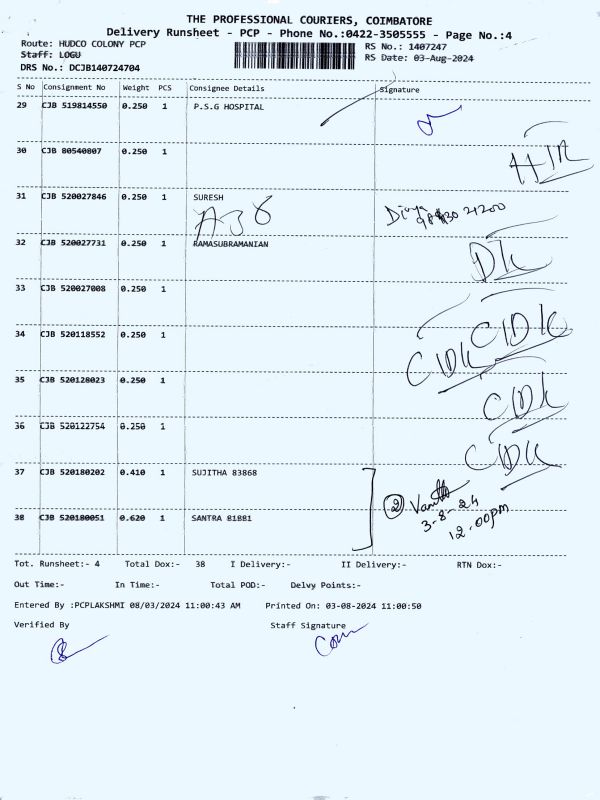 THE PROFESSIONAL COURIERS, COIMBATORE
Delivery Runsheet - PCP - Phone No.:0422-3505555 - Page No.:4
Route: HUDCO COLONY PCP
RS No.: 1407247
Staff: LOGU
RS Date: 03-Aug-2024
DRS No.: DCJB140724704
S No Consignment No Weight PCS Consignee Details Signature
29 CJB 519814550 0.250 1 P.S.G HOSPITAL
30 CJB 80540807 0.250 1
31 CJB 520027846 0.250 1 SURESH
32 CJB 520027731 0.250 1 RAMASUBRAMANIAN
DK
33 CJB 520027008 0.250 1
34 CJB 520118552 0.250 1
CIDK CIDK
35 CJB 520128023 0.250 1
CIDK
36 CJB 520122754 0.250 1
CIDK
37 CJB 520180202 0.410 1 SUJITHA 83868
②
3-8-24
38 CJB 520180051 0.620 1 SANTRA 81881
12.00pm
Tot. Runsheet:- 4 Total Dox:- 38 I Delivery:- II Delivery:- RTN Dox:-
Out Time:- In Time:- Total POD:- Delvy Points:-
Entered By :PCPLAKSHMI 08/03/2024 11:00:43 AM Printed On: 03-08-2024 11:00:50
Verified By Staff Signature